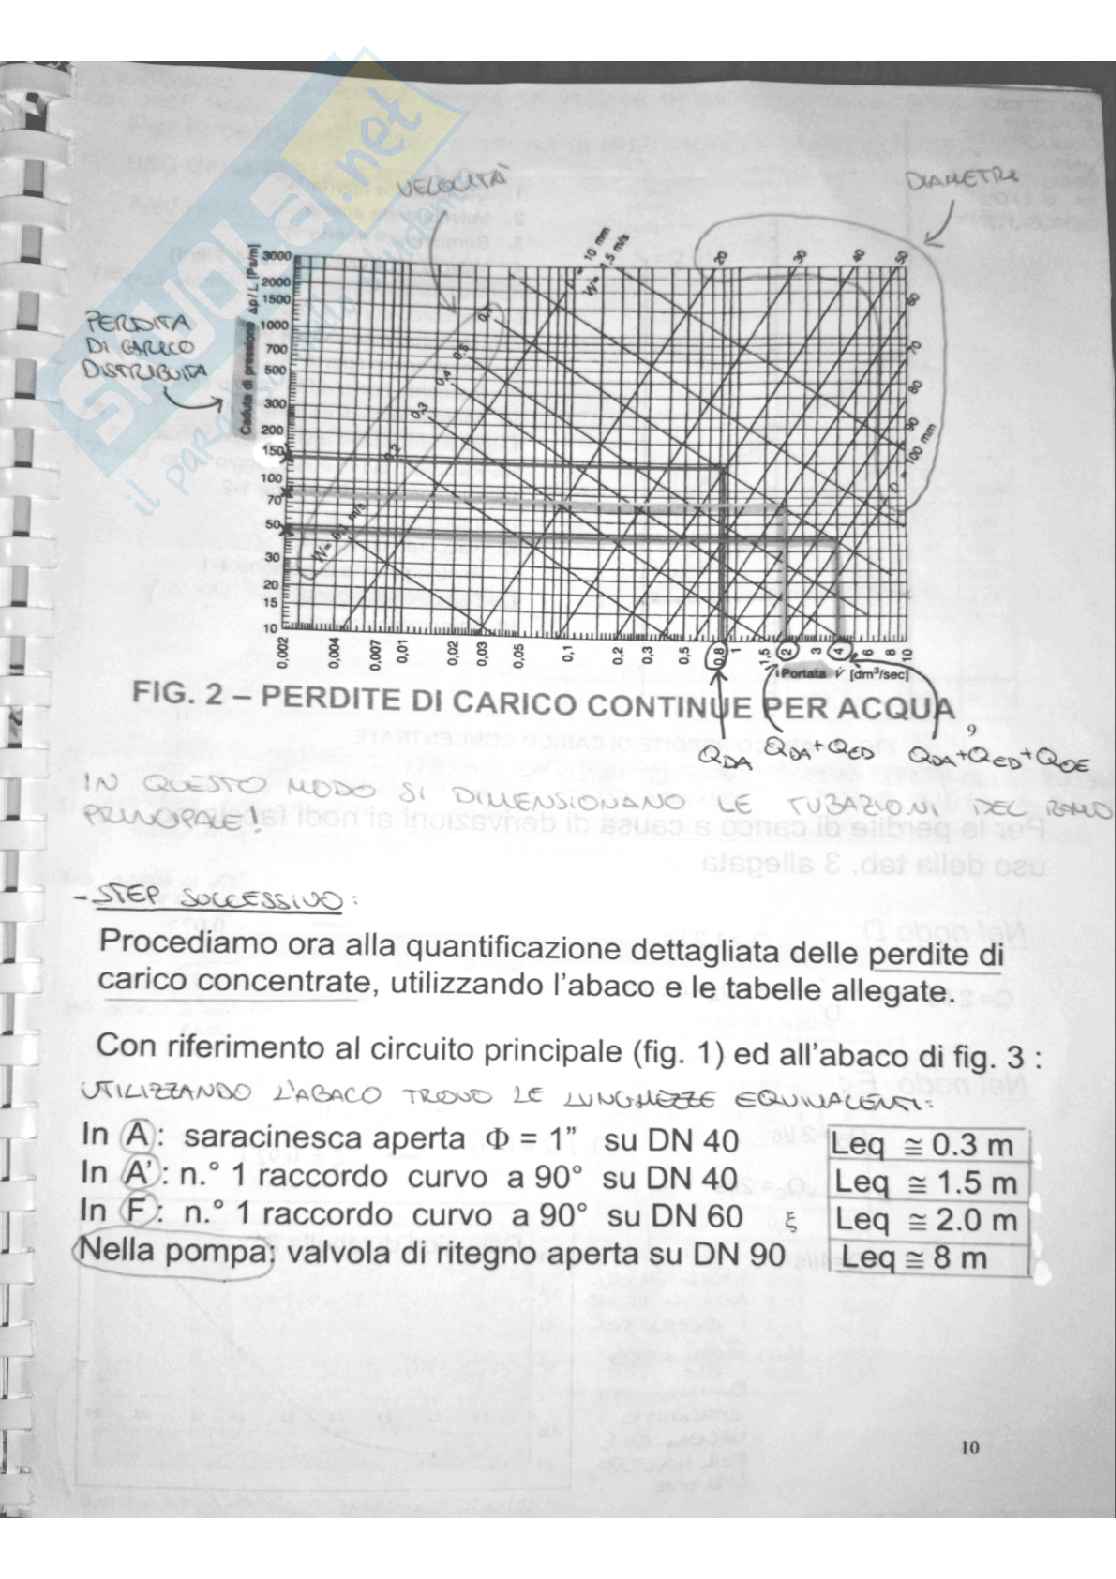 SKUOLA.net
il paradiso dello studente
VELOCITA'
DIAMETRI
PERDITA
DI CARICO
DISTRIBUITA
Caduta di pressione Δp/L [Pa/m]
3000
2000
1500
1000
700
500
300
200
150
100
70
50
30
20
15
10
0,002
0,004
0,007
0,01
0,02
0,03
0,05
0,1
0,2
0,3
0,5
0,8
1
1,5
2
3
4
6
8
10
Portata V̇ [dm³/sec]
W= 0,1 m/s
0,2
0,3
0,4
= 10 mm
W= 1,5 m/s
20
30
40
50
60
70
80
90
D = 100 mm
FIG. 2 – PERDITE DI CARICO CONTINUE PER ACQUA
QDA
QDA+QED
QDA+QED+QOE
IN QUESTO MODO SI DIMENSIONANO LE TUBAZIONI DEL RAMO
PRINCIPALE!
- STEP SUCCESSIVO:
Procediamo ora alla quantificazione dettagliata delle perdite di
carico concentrate, utilizzando l'abaco e le tabelle allegate.
Con riferimento al circuito principale (fig. 1) ed all'abaco di fig. 3 :
UTILIZZANDO L'ABACO TROVO LE LUNGHEZZE EQUIVALENTI:
In A : saracinesca aperta Φ = 1” su DN 40 Leq ≅ 0.3 m
In A' : n.° 1 raccordo curvo a 90° su DN 40 Leq ≅ 1.5 m
In F : n.° 1 raccordo curvo a 90° su DN 60 ξ Leq ≅ 2.0 m
Nella pompa: valvola di ritegno aperta su DN 90 Leq ≅ 8 m
10